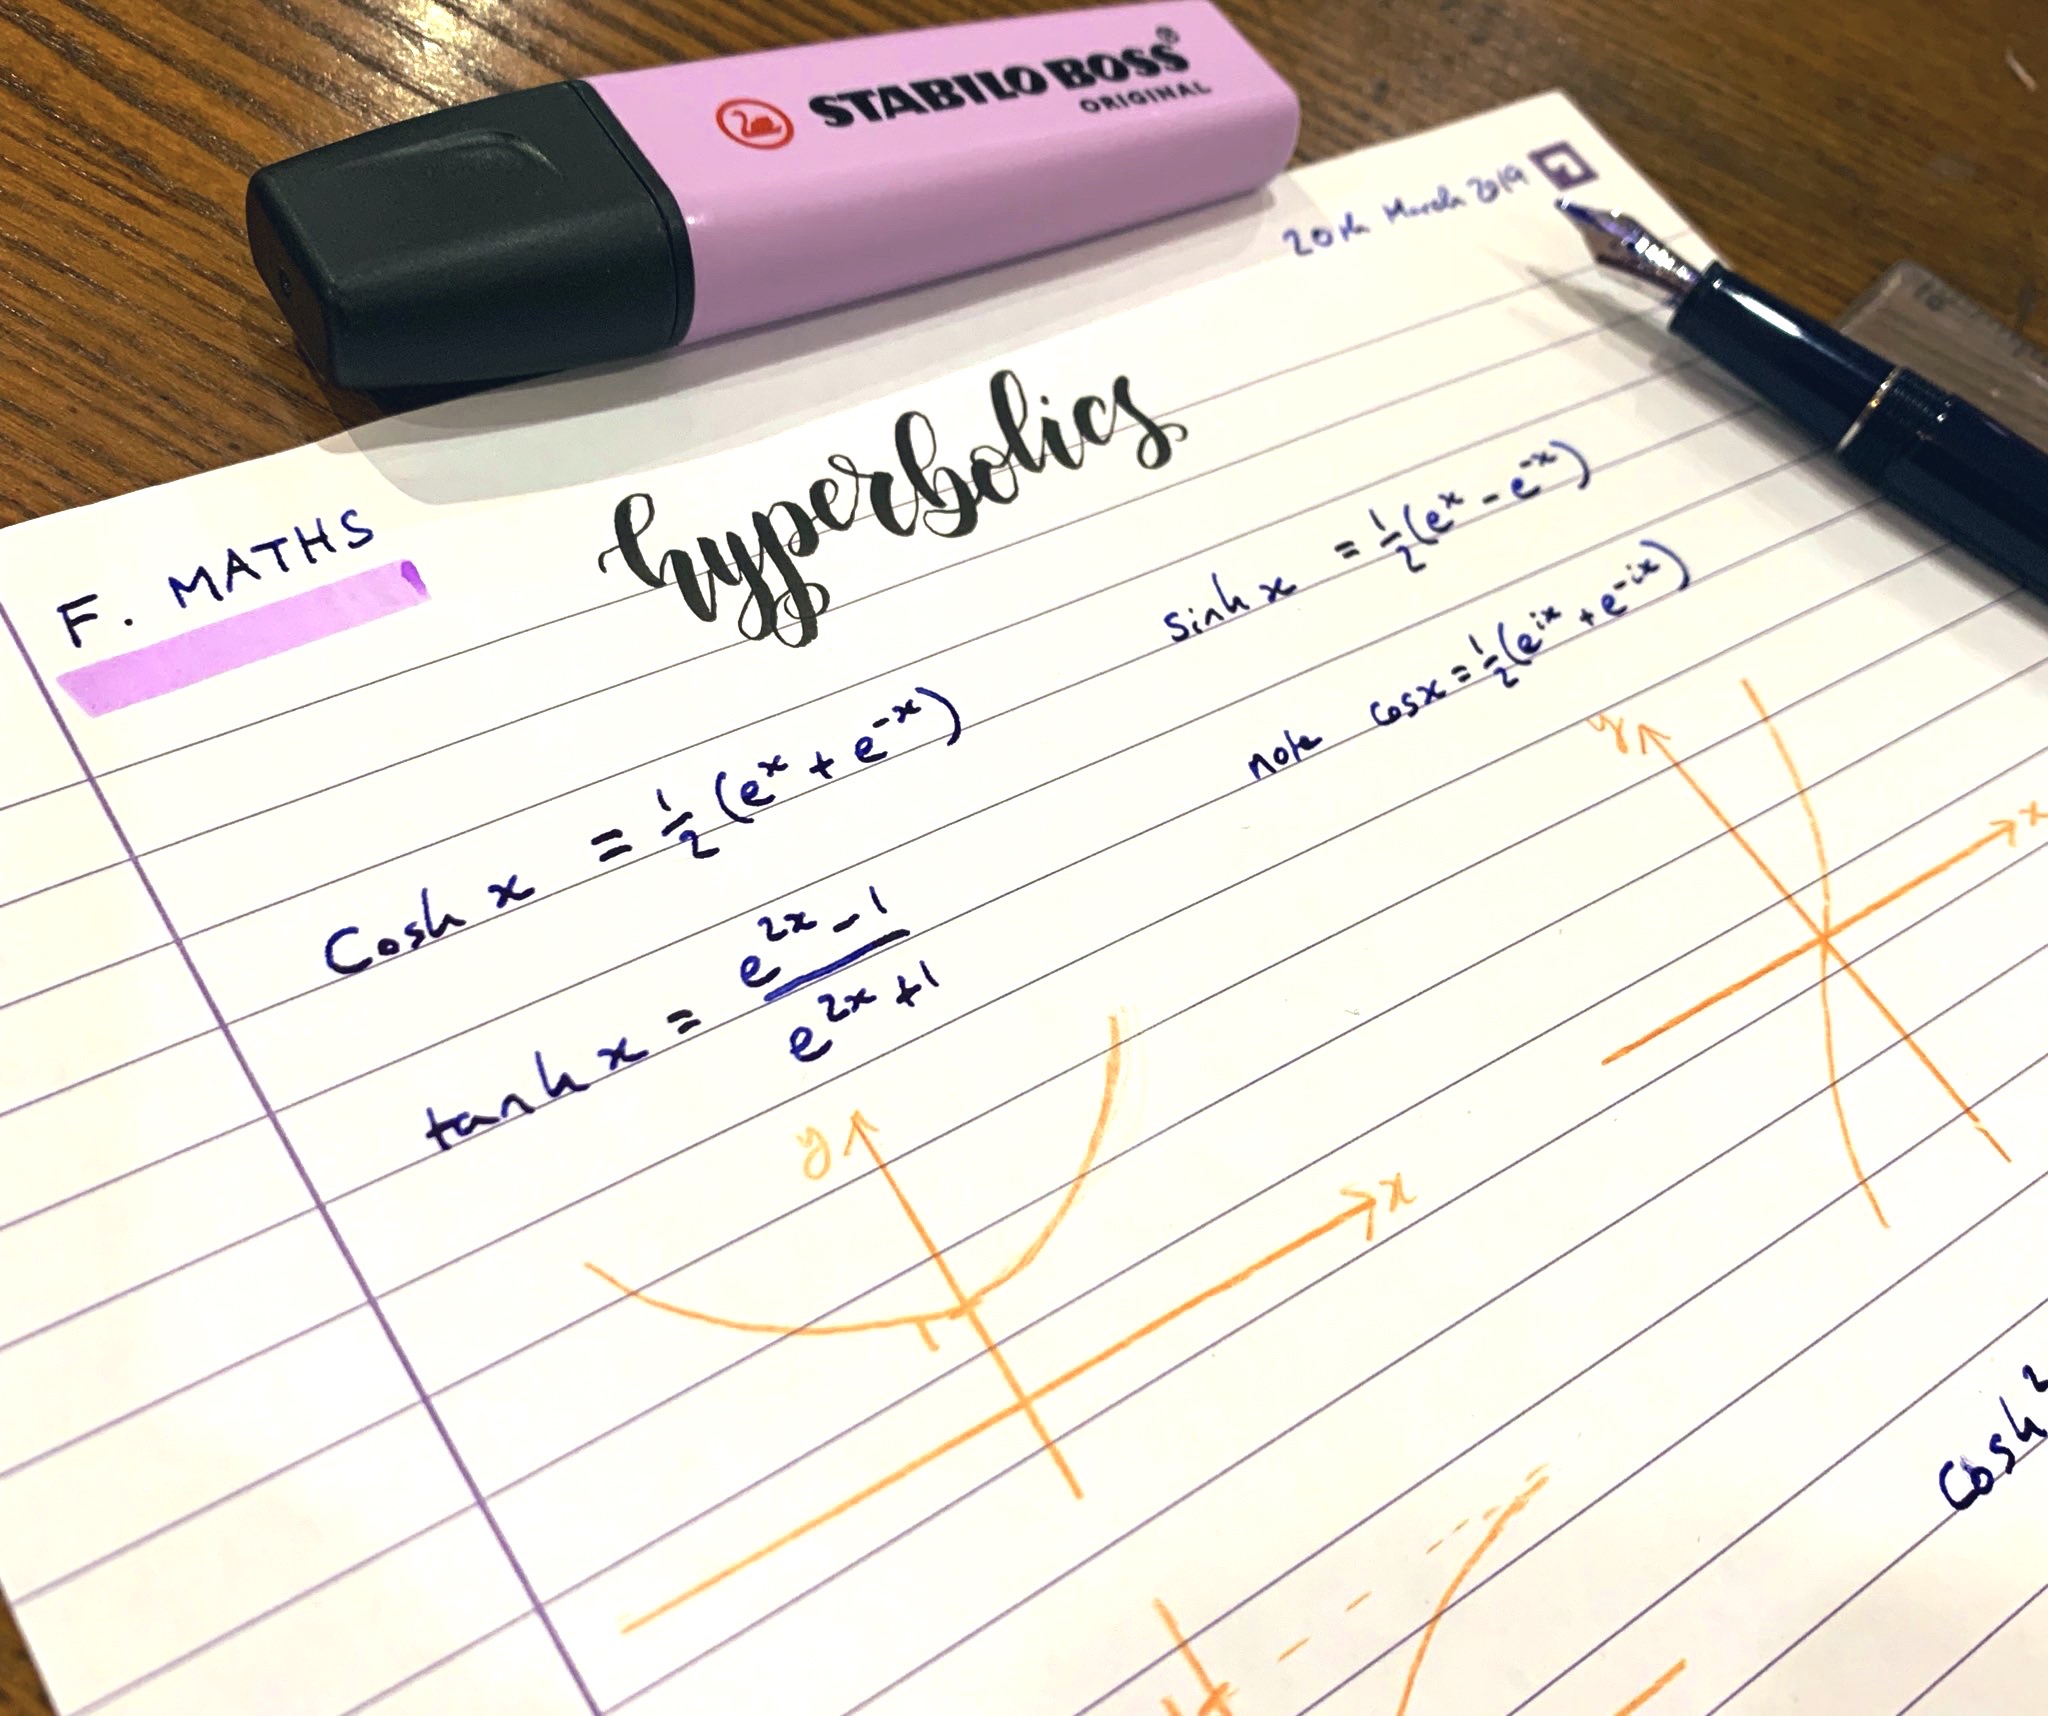 STABILO BOSS®
ORIGINAL
20th March 2019
F. MATHS
hyperbolics
sinh x = ½(eˣ - e⁻ˣ)
cosh x = ½(eˣ + e⁻ˣ)
note cos x = ½(eⁱˣ + e⁻ⁱˣ)
tanh x = (e²ˣ - 1)/(e²ˣ + 1)
y
x
y
x
1
Cosh²